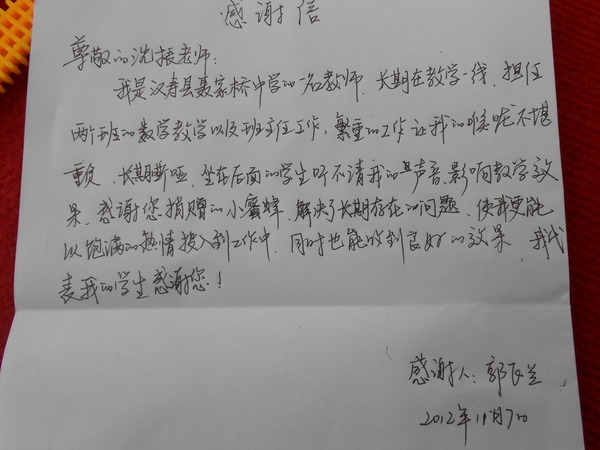 感谢信
尊敬的沈振老师：
我是汉寿县聂家桥中学的一名教师，长期在教学一线，担任
两个班的数学教学以及班主任工作，繁重的工作让我的喉咙不堪
重负，长期嘶哑，坐在后面的学生听不清我的声音，影响教学效
果，感谢您捐赠的小蜜蜂，解决了长期存在的问题，使我更能
以饱满的热情投入到工作中，同时也能收到良好的效果，我代
表我的学生感谢您！
感谢人：郭 兰
2012年11月7日